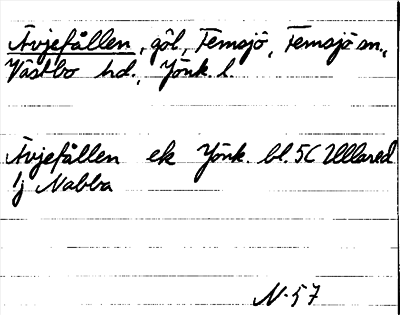 Åvjefållen, göl, Femsjö, Femsjö sn.,
Västbo hd., Jönk. l.
Åvjefållen ek Jönk. bl. 5C Ullared
1j Nabba
N-57